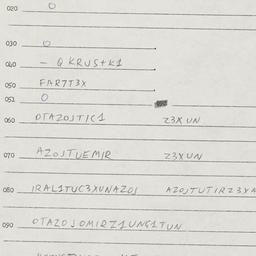 020 O
030 O
040 – QKRUStK1
050 FAR7T3X
051 O
060 OTAZOJTIC1 Z3XUN
070 AZOJTUEMIR Z3XUN
080 IRAL1TUC3XUNAZOJ AZOJTUTIRZ3XA
090 OTAZOJOMIRZ1UNG1TUN